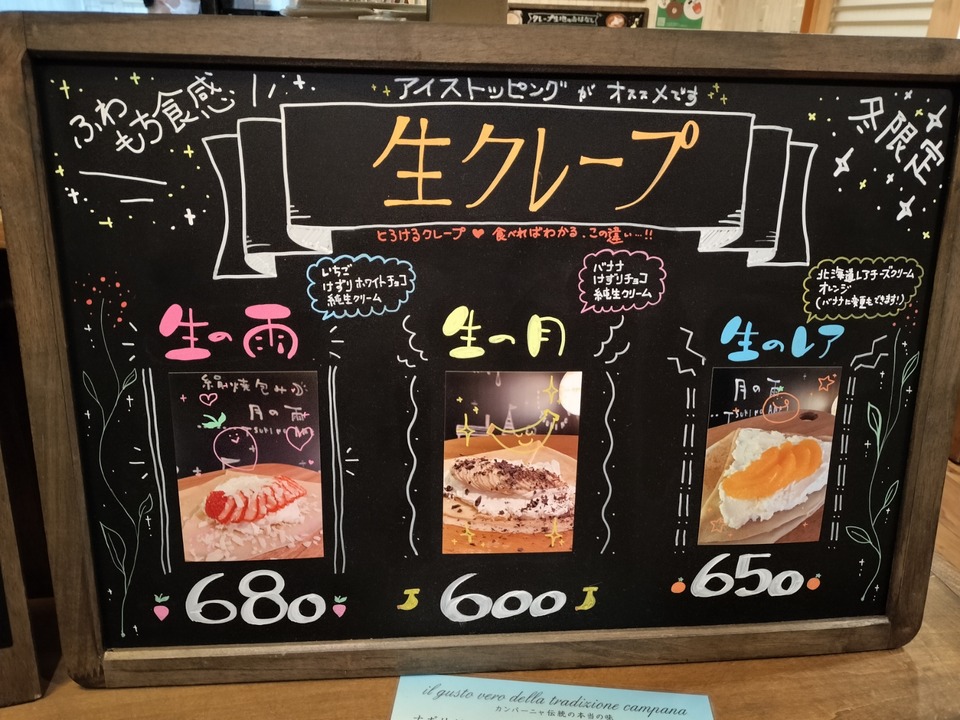 クレープ生地のおはなし
アイストッピングがオススメです
ふわ
もち食感
冬限定
生クレープ
とろけるクレープ♥食べればわかる、この違い…!!
いちご
けずりホワイトチョコ
純生クリーム
バナナ
けずりチョコ
純生クリーム
北海道レアチーズクリーム
オレンジ
(バナナに変更もできます!)
生の雨
生の月
生のレア
絹焼包みぷ
月の雨
TSUKI NO AME
月の雨
TSUKI NO AME
680
600
650
il gusto vero della tradizione campana
カンパーニャ伝統の本当の味